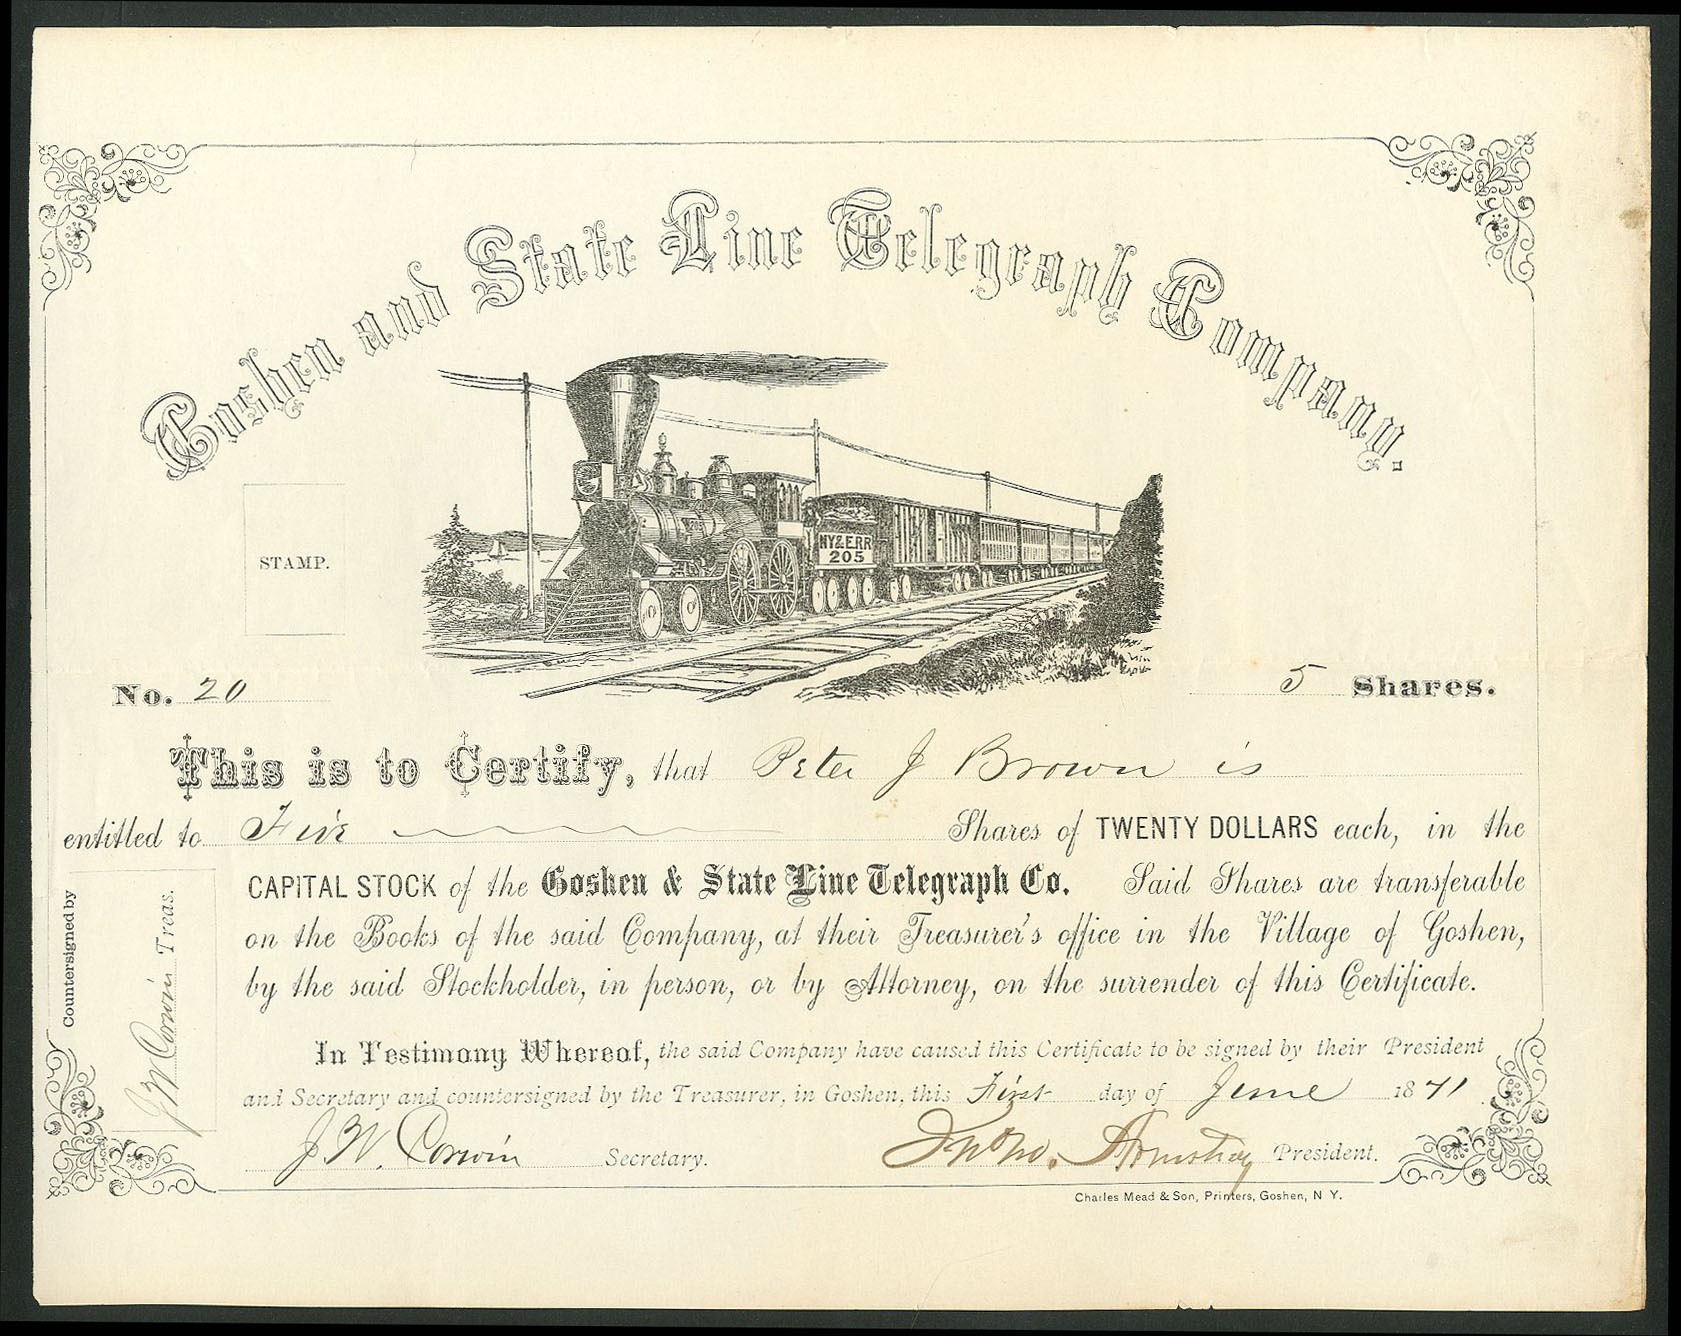 Goshen and State Line Telegraph Company.
STAMP.
NY&ERR
205
No. 20
5 Shares.
This is to Certify, that Peter J Brown is
entitled to Five Shares of TWENTY DOLLARS each, in the
CAPITAL STOCK of the Goshen & State Line Telegraph Co. Said Shares are transferable
on the Books of the said Company, at their Treasurer's office in the Village of Goshen,
by the said Stockholder, in person, or by Attorney, on the surrender of this Certificate.
Countersigned by
J W Corwin Treas.
In Testimony Whereof, the said Company have caused this Certificate to be signed by their President
and Secretary and countersigned by the Treasurer, in Goshen, this First day of June 1871
J W. Corwin Secretary.
President.
Charles Mead & Son, Printers, Goshen, N Y.